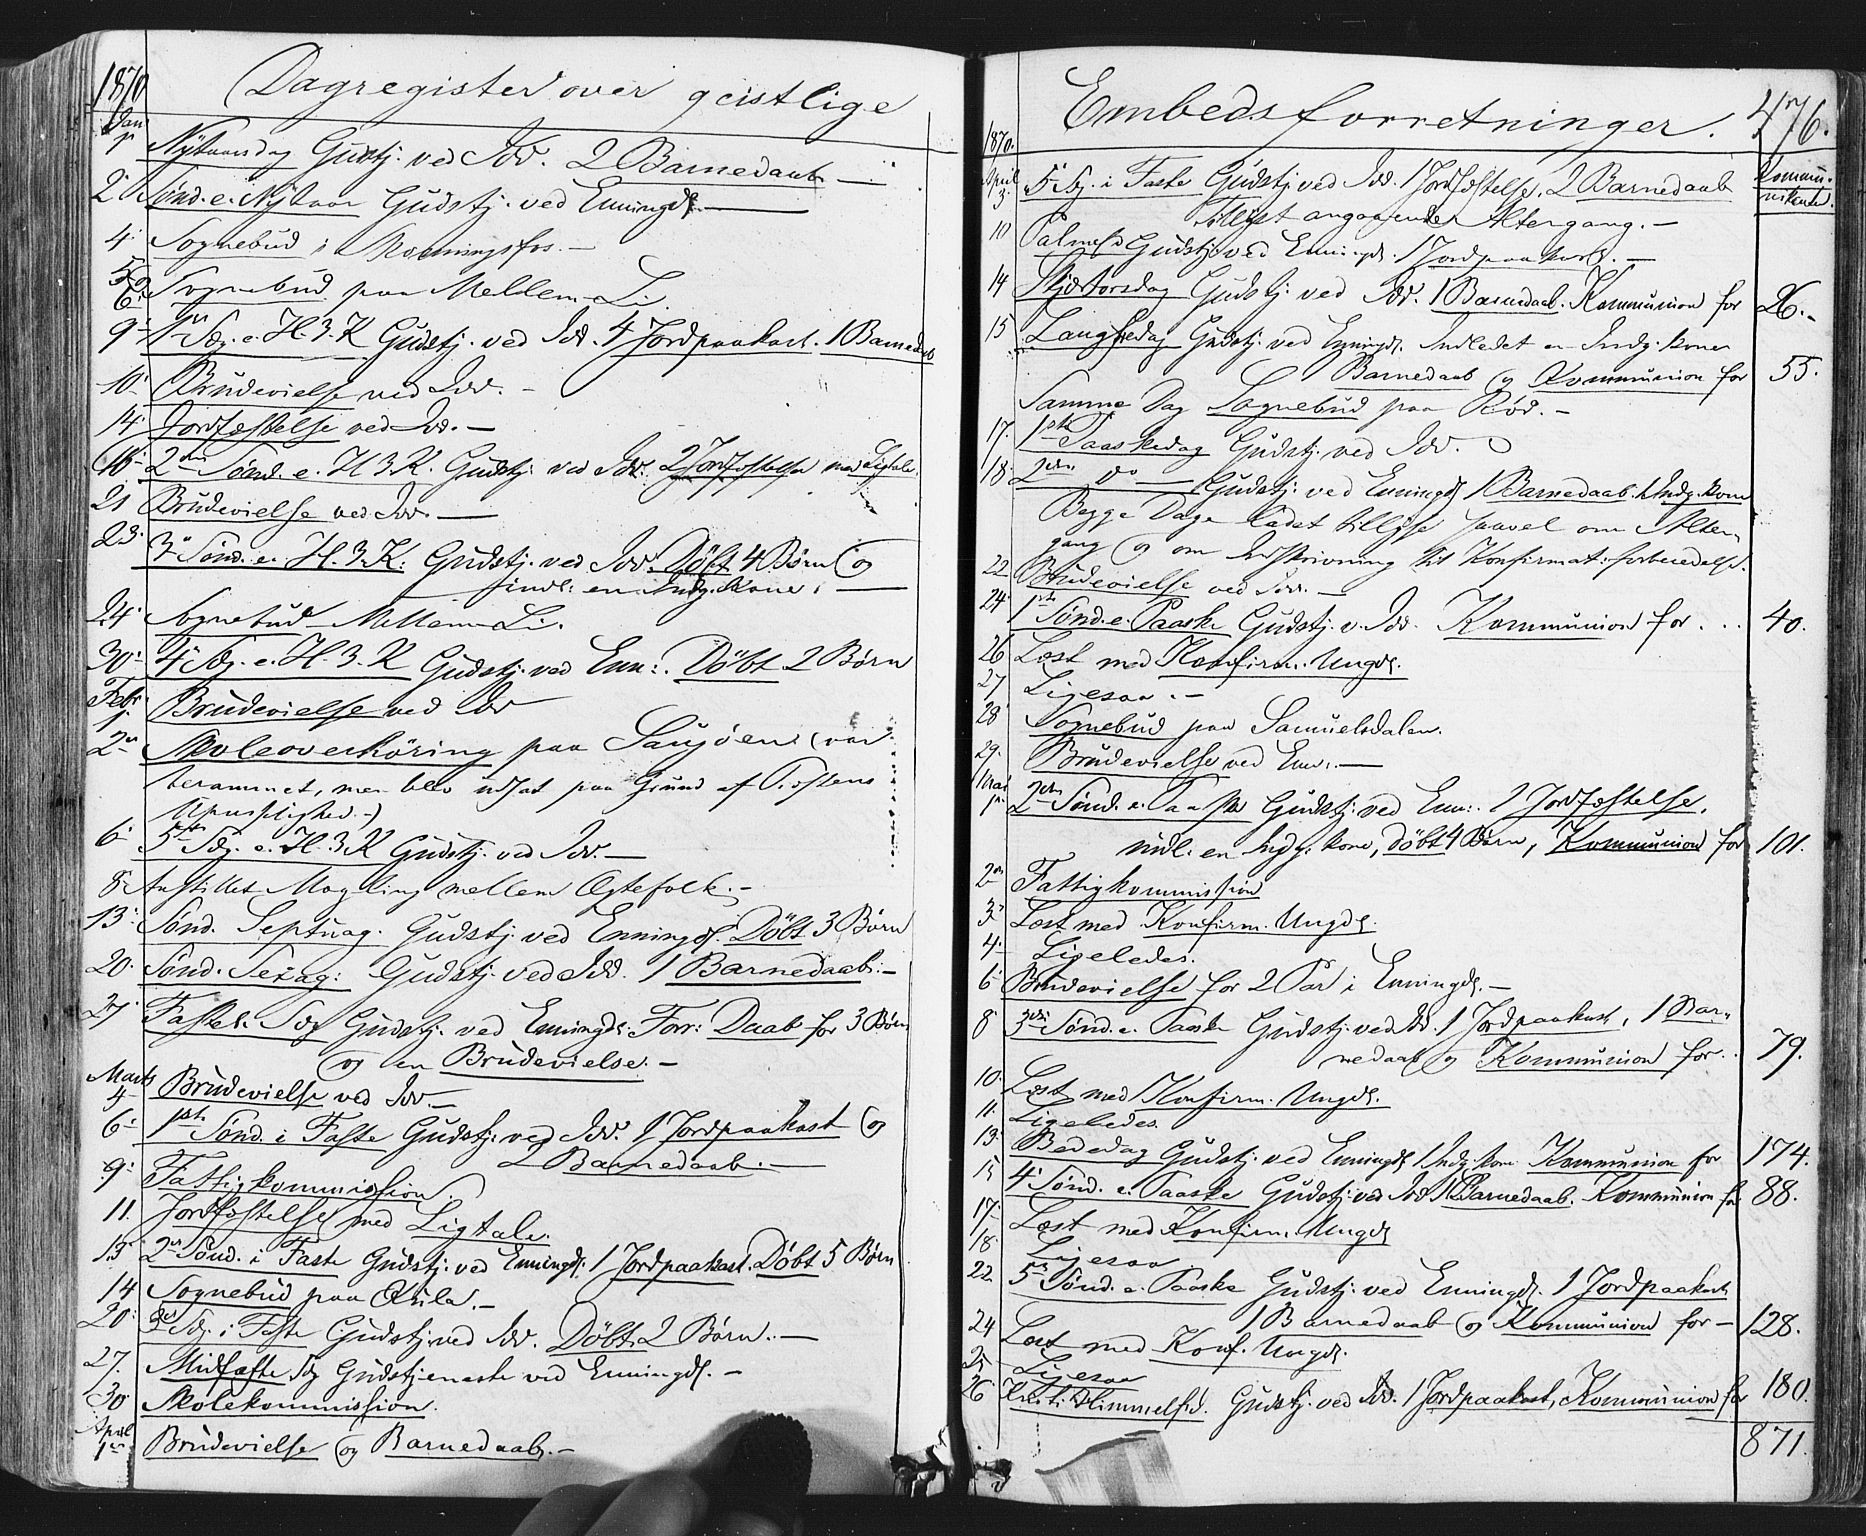 1870 Dagregister over geistlige
Jan
1 Nÿtaarsdag Gudstj. ved Idd. 2 Barnedaab —
2 Sønd. e. Nÿtaar Gudstj. ved Enningd. —
4 Sognebud i —
5 & 6 Sognebud paa Mellem-Li.
9 1ste Søg. e. H. 3. K Gudstj. ved Idd. 4 Jordpaakast. 1 Barnedaab
10 Brudevielse ved Idd. —
14 Jordfæstelse ved Idd. —
16 2den Sønd. e. H 3. K. Gudstj. ved Idd. 2 Jordfæstelse med Ligtale.
21 Brudevielse ved Idd. —
23 3die Sønd. e. H. 3. K. Gudstj. ved Idd. Döbt 4 Børn og
indl: en Indg. Kone. —
24 Sognebud Mellem-Li.
30 4de Søg. e. H. 3. K Gudstj. ved Enn:. Döbt 2 Børn
Febr.
1 Brudevielse ved Idd
2 Skoleoverhöring paa (var
berammet, men blev udsat paa Grund af
Upasslighed.)
6 5te Søg. e. H. 3. K Gudstj. ved Idd. —
8 Anstillet Mægling mellem Ægtefolk. —
13 Sønd. Septuag. Gudstj. ved Enningd. Döbt 3 Börn
20 Sønd. Sexag: Gudstj. ved Idd. 1 Barnedaab. —
27 Fastel. Søg Gudstj. ved Enningd. Forr: Daab for 3 Børn
og en Brudevielse. —
Marts
4 Brudevielse ved Idd. —
6 1ste Sønd. i Faste Gudstj. ved Idd. 1 Jordpaakast og
2 Barnedaab. —
9 Fattigkommission.
11. Jordfæstelse med Ligtale.
13 2den Sønd. i Faste Gudstj. ved Enningd. 1 Jordpaakast. Döbt 5 Börn
14 Sognebud paa —
20 3die Søg. i Faste Gudstj. ved Idd. Döbt 2 Børn. —
27. Midfaste Søg Gudstjeneste ved Enningd. —
30 Skolekommission.
April
1 Brudevielse og Barnedaab. —
Embedsforretninger. 476.
1870. Kommunikanter.
April
3 5te Søg. i Faste Gudstj. ved Idd. 1 Jordfæstelse. 2 Barnedaab
Tillyst angaaende Altergang. —
10 Palmesd Gudstj. ved Enningd. 1 Jordpaakast. —
14 Skjærtorsdag Gudstj. ved Idd. 1 Barnedaab. Kommunion for 26. —
15 Langfredag Gudstj. ved Enningd. Indledet en Indg. kone
1 Barnedaab og Kommunion for 55.
Samme Dag Sognebud paa Röd. —
17. 1ste Paaskedag Gudstj. ved Idd.
18 2den do — Gudstj. ved Enningd 1 Barnedaab. 1 Indg. kone
Begge Dage ladet tillyse saavel om Alter-
gang og om Indskrivning til Konfirmat: forberedelse.
22 Brudevielse ved Idd. —
24 1ste Sønd. e. Paaske Gudstj. v. Idd. Kommunion for . . . 40.
26 Læst med Konfirm. Ungd.
27 Ligesaa. —
28 Sognebud paa Samuelsdalen.
29. Brudevielse ved Enn:. —
Mai
1 2den Sønd. e. Paaske Gudstj. ved Enn:. 1 Jordfæstelse.
indl: en Indg. kone, döbt 4 Børn, Kommunion for 101.
2 Fattigkommission
3 Læst med Konfirm. Ungd.
4. Ligeledes.
6 Brudevielse for 2 Par i Enningd. —
8 3die Sønd. e. Paaske Gudstj. ved Idd. 1 Jordpaakast, 1 Bar-
nedaab og Kommunion for . . 79.
10. Læst med Konfirm. Ungd.
11. Ligeledes.
13. Bededag Gudstj. ved Enningd 1 Indg. kone Kommunion for 174.
15 4de Sønd. e. Paaske Gudstj. ved Idd 1 Barnedaab. Kommunion for 88.
17. Læst med Konfirm. Ungd
18. Ligesaa
22 5te Sønd. e. Paaske Gudstj. ved Enningd. 1 Jordpaakast
1 Barnedaab og Kommunion for — 128.
24 Læst med Konf. Ungd.
25 Ligesaa
26 Kristi Himmelfd. Gudstj. ved Idd. 1 Jordpaakast, Kommunion for 180.
871.